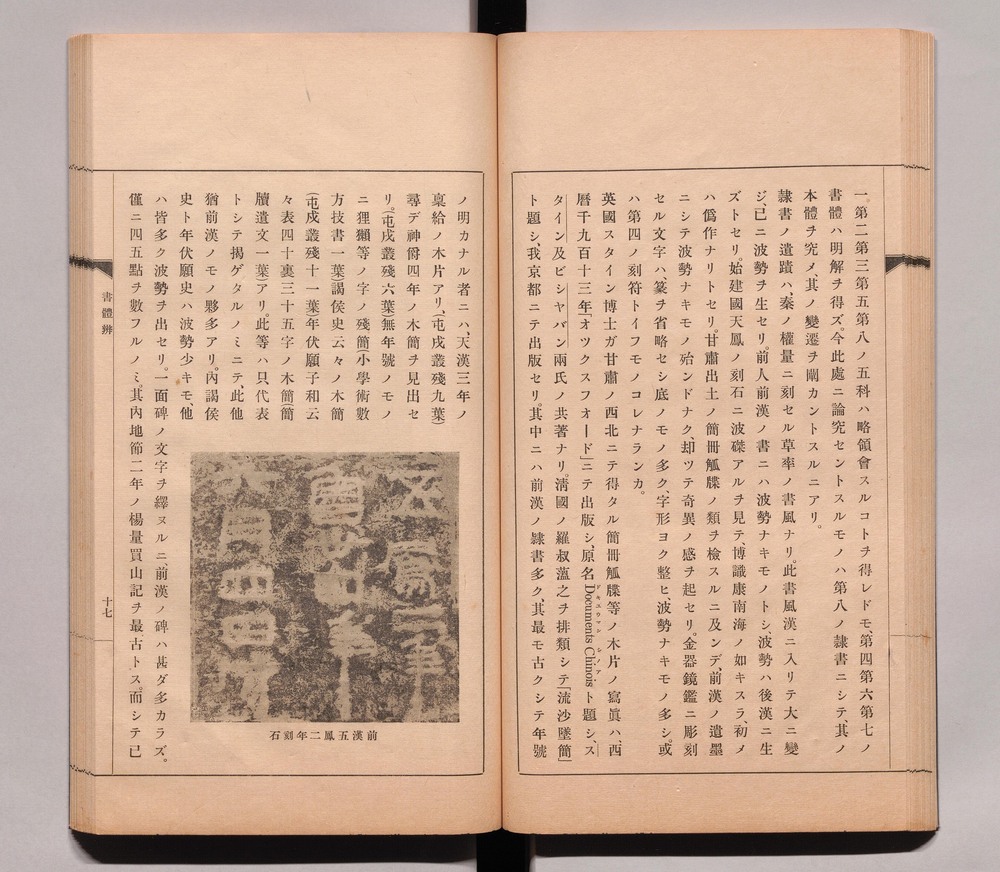 一。第二第三第五第八ノ五科ハ略領會スルコトヲ得レドモ、第四第六第七ノ
書體ハ明解ヲ得ズ。今此處ニ論究セントスルモノハ第八ノ隸書ニシテ、其ノ
本體ヲ究メ、其ノ變遷ヲ闡カントスルニアリ。
隸書ノ遺蹟ハ、秦ノ權量ニ刻セル草率ノ書風ナリ。此書風漢ニ入リテ大ニ變
ジ、已ニ波勢ヲ生セリ。前人前漢ノ書ニハ波勢ナキモノトシ、波勢ハ後漢ニ生
ズトセリ。始建國天鳳ノ刻石ニ波磔アルヲ見テ、博識康南海ノ如キスラ、初メ
ハ僞作ナリトセリ。甘肅出土ノ簡冊觚牒ノ類ヲ檢スルニ及ンデ、前漢ノ遺墨
ニシテ波勢ナキモノ殆ンドナク、却ツテ奇異ノ感ヲ起セリ。金器鏡鑑ニ彫刻
セル文字ハ、篆ヲ省略セシ底ノモノ多ク、字形ヨク整ヒ、波勢ナキモノ多シ。或
ハ第四ノ刻符トイフモノコレナランカ。
英國スタイン博士ガ甘肅ノ西北ニテ得タル簡冊觚牒等ノ木片ノ寫眞ハ、西
曆千九百十三年「オツクスフオード」ニテ出版シ、原名Documents Chinoisト題シ、ス
タイン及ビシヤバン兩氏ノ共著ナリ。淸國ノ羅叔薀之ヲ排類シテ「流沙墜簡」
ト題シ、我京都ニテ出版セリ。其中ニハ前漢ノ隸書多ク、其最モ古クシテ年號
ノ明カナル者ニハ、天漢三年ノ
稟給ノ木片アリ、(屯戍叢殘九葉)
尋デ神爵四年ノ木簡ヲ見出セ
リ。(屯戍叢殘六葉)無年號ノモノ
ニ狸獺等ノ字ノ殘簡(小學術數
方技書一葉)謁侯史云々ノ木簡
(屯戍叢殘十一葉)年伏願子和云
々表四十裏三十五字ノ木簡(簡
牘遺文一葉)アリ。此等ハ只、代表
トシテ揭ゲタルノミニテ、此他
猶前漢ノモノ夥多アリ。內謁侯
史ト年伏願史ハ波勢少キモ、他
ハ皆多ク波勢ヲ出セリ。一面碑ノ文字ヲ繹ヌルニ、前漢ノ碑ハ甚ダ多カラズ。
僅ニ四五點ヲ數フルノミ。其內地節二年ノ楊量買山記ヲ最古トス。而シテ已
前漢五鳳二年刻石
書體辨
十七